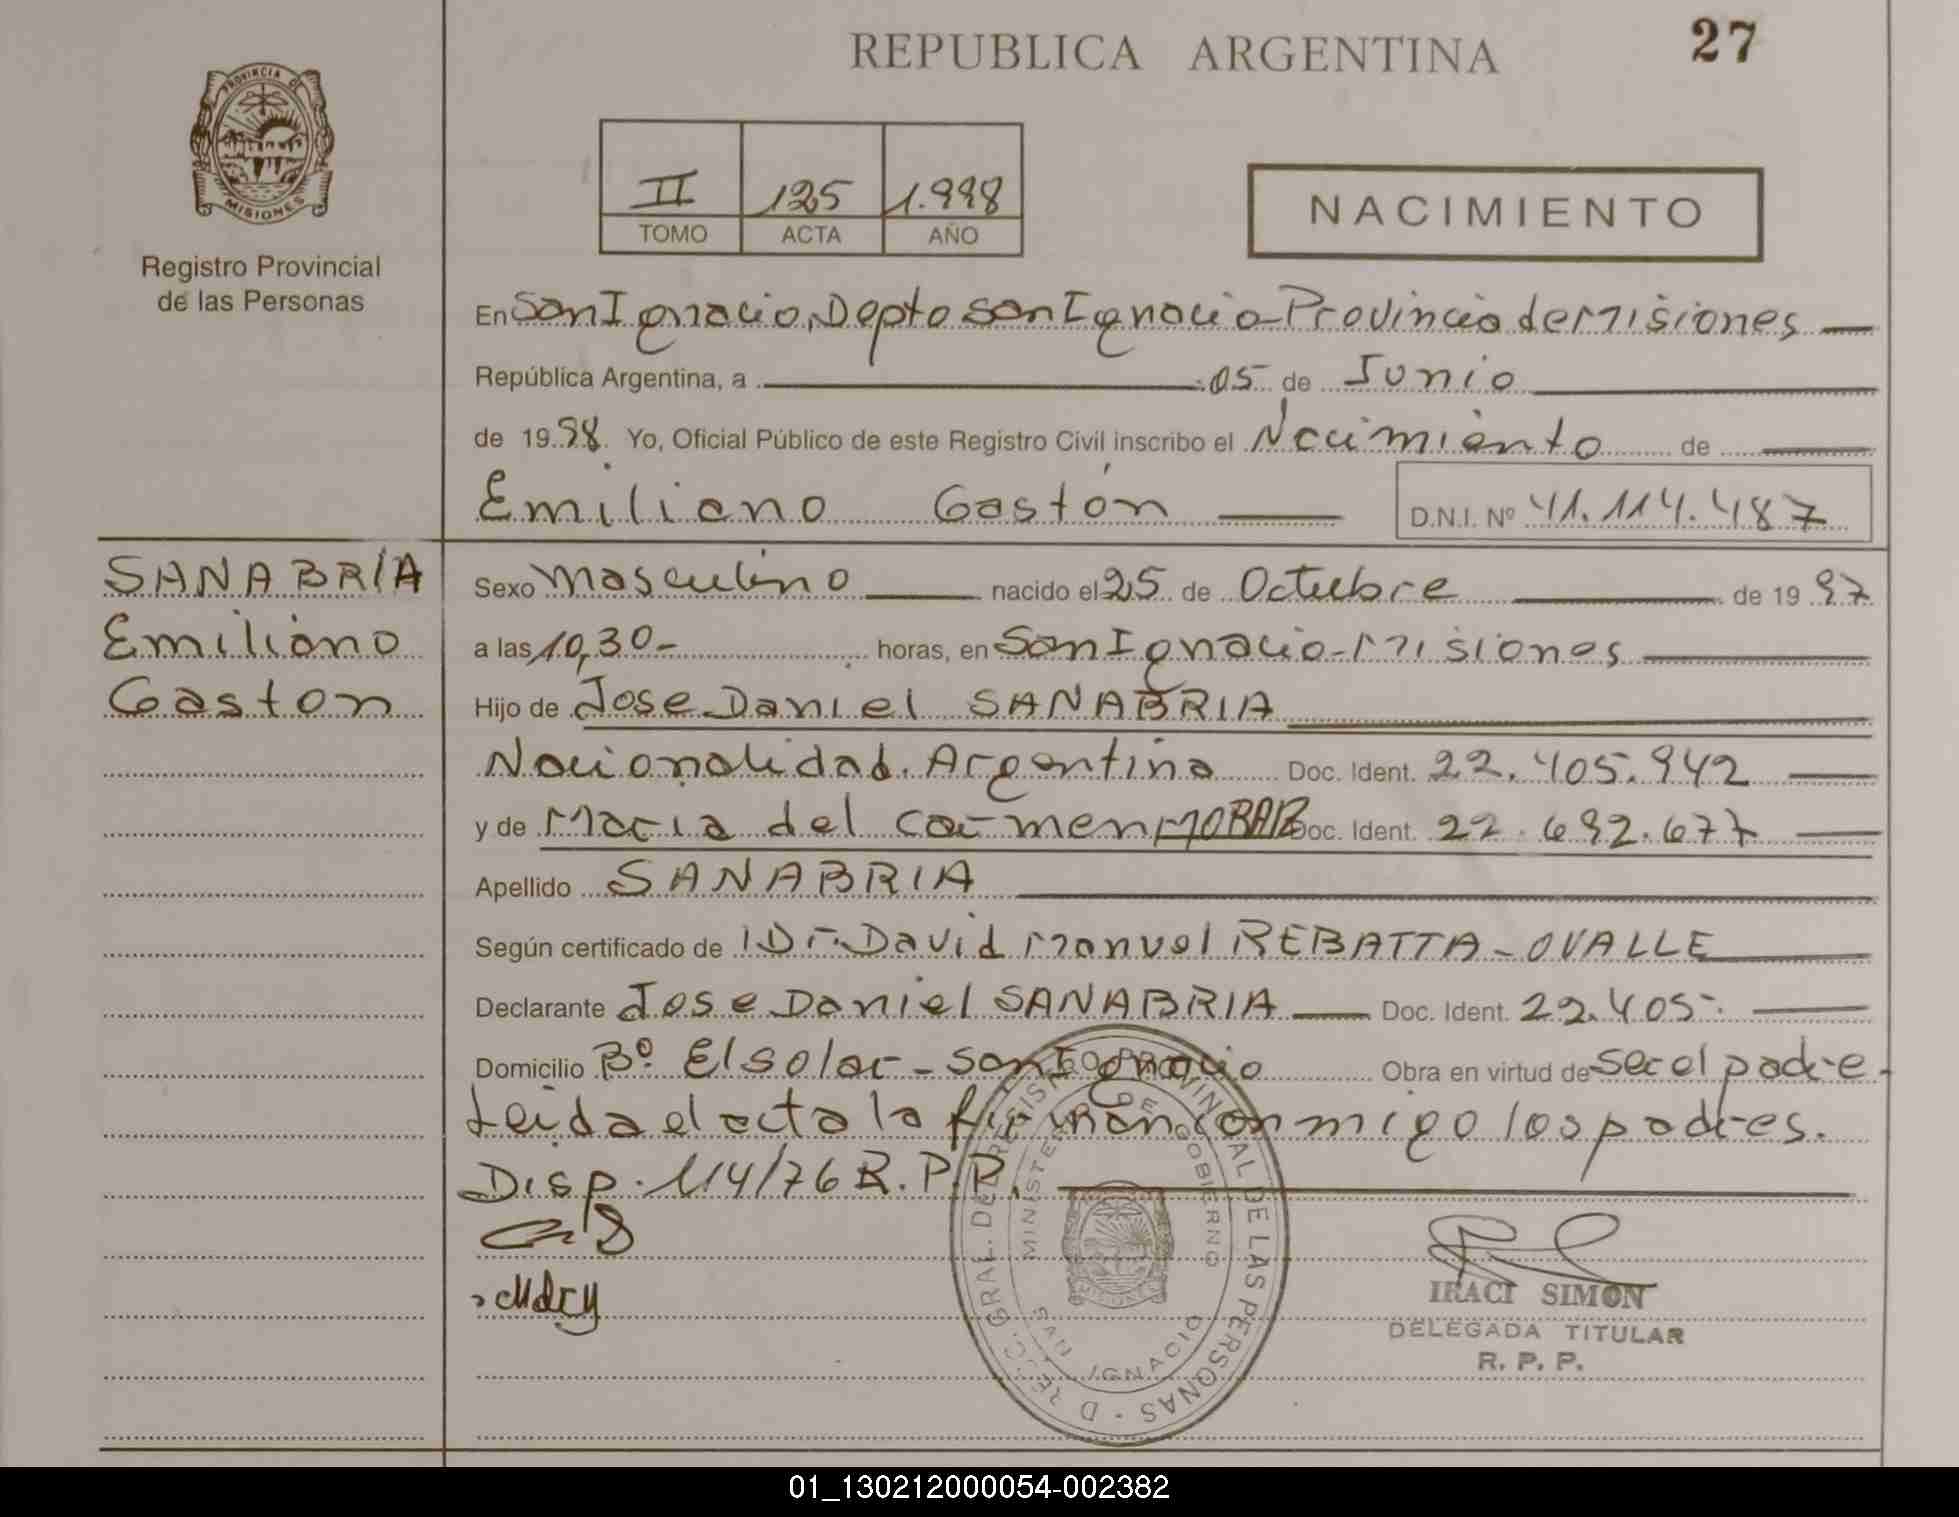 REPUBLICA ARGENTINA
27
PROVINCIA DE
MISIONES
Registro Provincial
de las Personas
II 125 1.998
TOMO ACTA AÑO
NACIMIENTO
En San Ignacio, Depto San Ignacio - Provincia de Misiones
República Argentina, a 05 de Junio
de 1998. Yo, Oficial Público de este Registro Civil inscribo el Nacimiento de
Emiliano Gastón
D.N.I. Nº 41.114.487
SANABRIA
Emiliano
Gaston
Sexo Masculino nacido el 25 de Octubre de 1997
a las 10,30- horas, en San Ignacio - Misiones
Hijo de Jose Daniel SANABRIA
Nacionalidad. Argentina Doc. Ident. 22.405.942
y de Maria del Carmen Doc. Ident. 22.692.677
Apellido SANABRIA
Según certificado de Dr. David Manuel REBATTA - OVALLE
Declarante Jose Daniel SANABRIA Doc. Ident. 22.405.
Domicilio Bº. El solar - San Ignacio Obra en virtud de ser el padre.
Leida el acta la firman conmigo los padres.
Disp. 114/76 R.P.P.
REG. GRAL. DEL REGISTRO PROVINCIAL DE LAS PERSONAS - D
MINISTERIO DE GOBIERNO
MISIONES
SAN IGNACIO
IRACI SIMON
DELEGADA TITULAR
R. P. P.
01_130212000054-002382